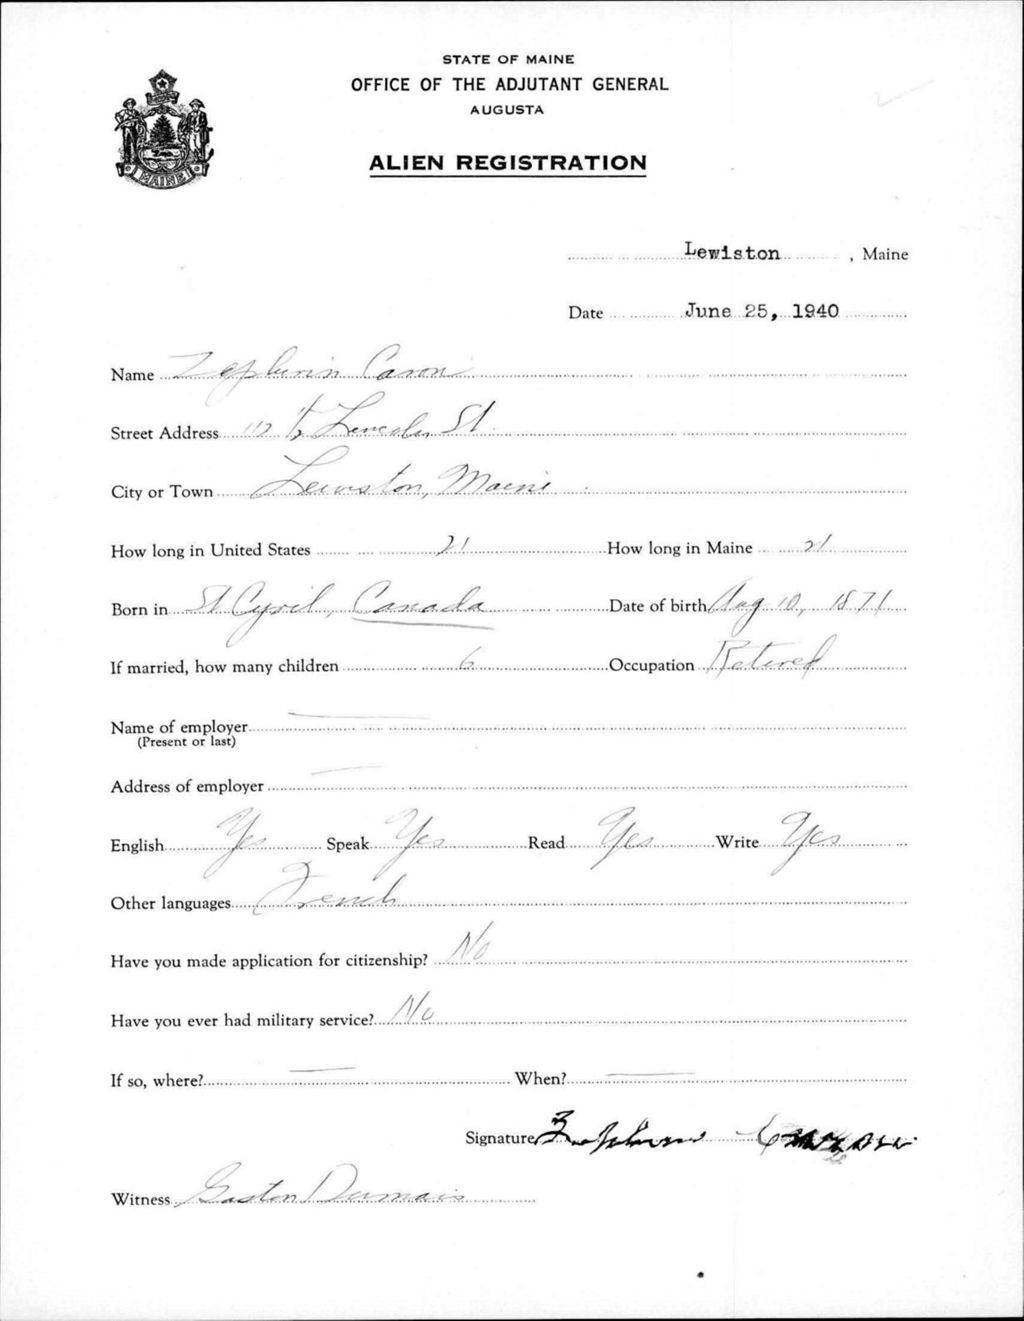 STATE OF MAINE
OFFICE OF THE ADJUTANT GENERAL
AUGUSTA
ALIEN REGISTRATION
MAINE
Lewiston, Maine
Date June 25, 1940
Name Zephirin Caron
Street Address 117 ½ Lincoln St.
City or Town Lewiston, Maine
How long in United States 21 How long in Maine 21
Born in St Cyril, Canada Date of birth Aug 10, 1871
If married, how many children 6 Occupation Retired
Name of employer
(Present or last)
Address of employer
English Yes Speak Yes Read Yes Write Yes
Other languages French
Have you made application for citizenship? No
Have you ever had military service? No
If so, where? When?
Signature
Witness Gaston Dumais